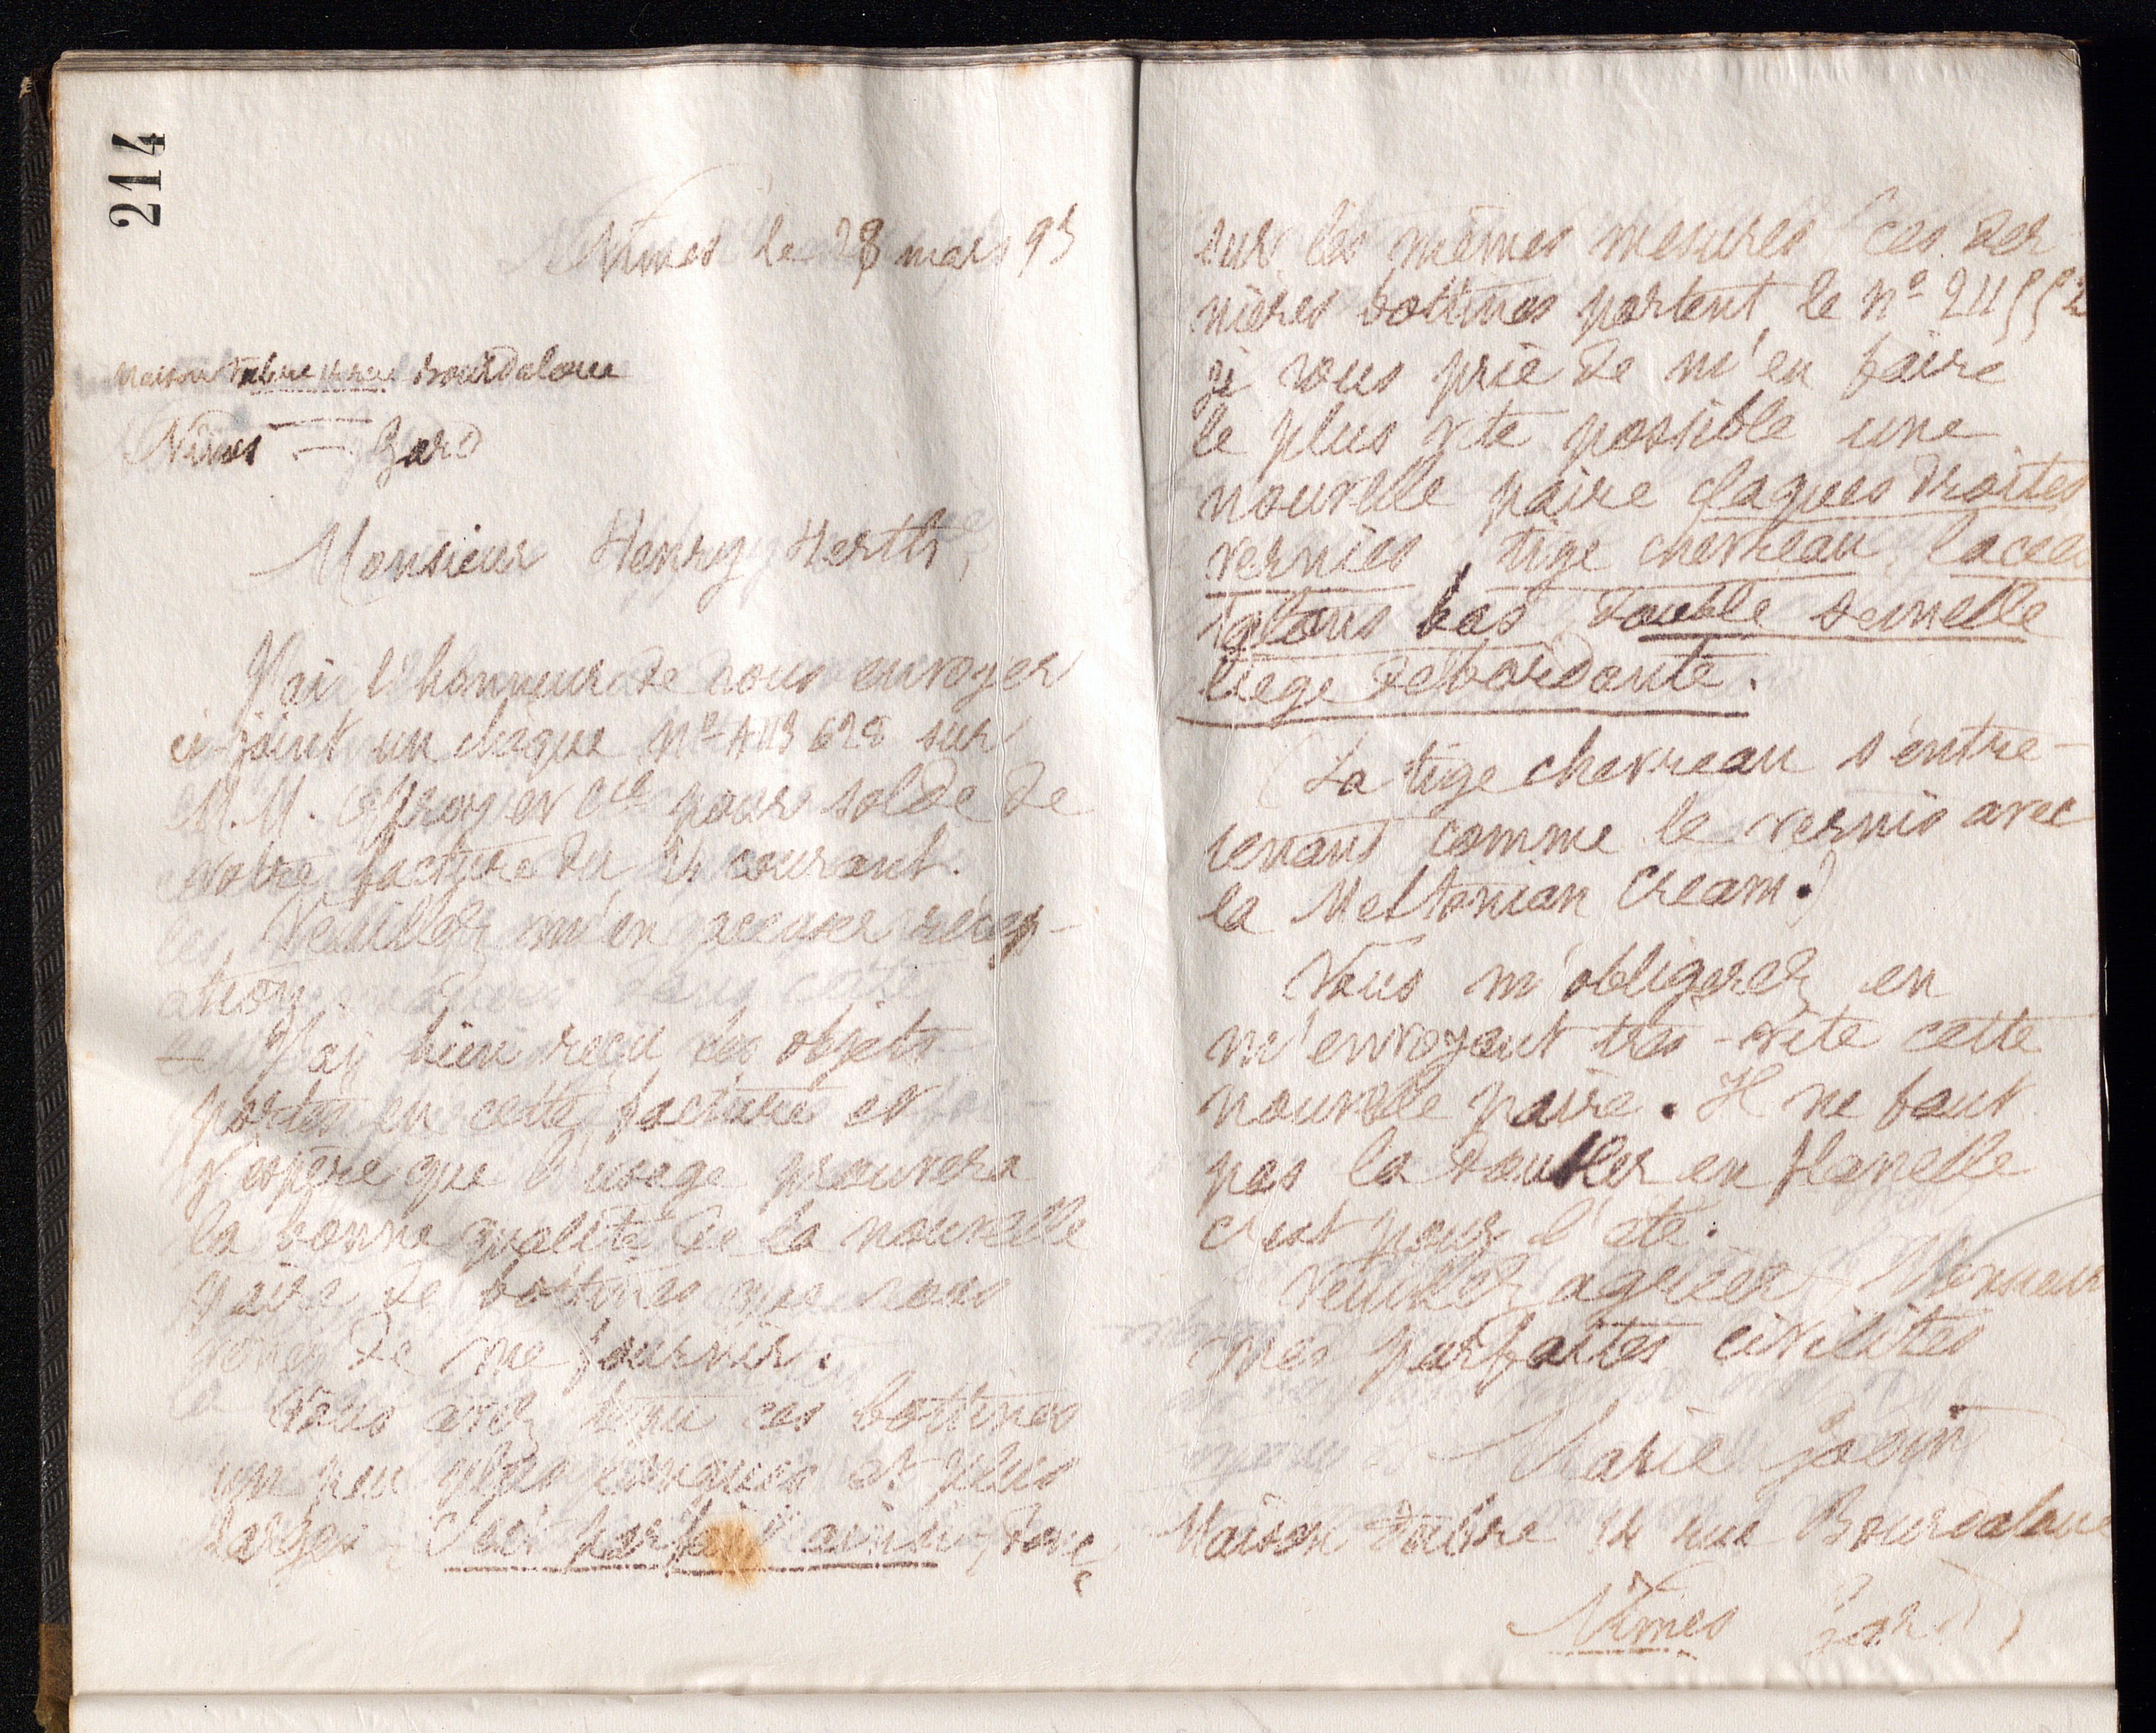 214
Nîmes le 28 mars 93
Maison Fabre 14 rue Bourdaloue
Nîmes — Gard
Monsieur Henry Herth,
J'ai l'honneur de vous envoyer
ci-joint un chèque nº 413 628 sur
M.M. et Cie pour solde de
votre facture du 24 courant.
Veuillez m'en accuser récep-
tion.
J'ai bien reçu les objets
portés en cette facture et
j'espère que l'usage prouvera
la bonne qualité de la nouvelle
paire de bottines que vous
venez de me fournir.
Vous avez tenu ces bottines
un peu plus longues et plus
larges – C'est parfait ainsi, donc,
sur les mêmes mesures (ces der
nières bottines portent le nº 24552
je vous prie de m'en faire
le plus vite possible une
nouvelle paire claques droites
vernies, tige chevreau, lacées
talons bas, double semelle
liege debordante.
(La tige chevreau s'entre-
tenant comme le vernis avec
la Meltonian Cream.)
Vous m'obligerez en
m'envoyant très-vite cette
nouvelle paire. Il ne faut
pas la doubler en flanelle
c'est pour l'été.
Veuillez agréer, Monsieur
mes parfaites civilités
Marie
Maison Fabre 14 rue Bourdaloue
Nîmes Gard